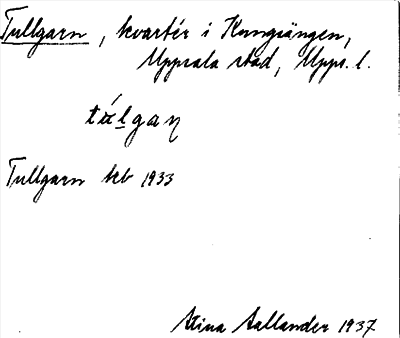 Tullgarn, kvartér i Kungsängen,
Uppsala stad, Upps. l.
túlgaɳ
Tullgarn kb 1933
Stina Sallander 1937